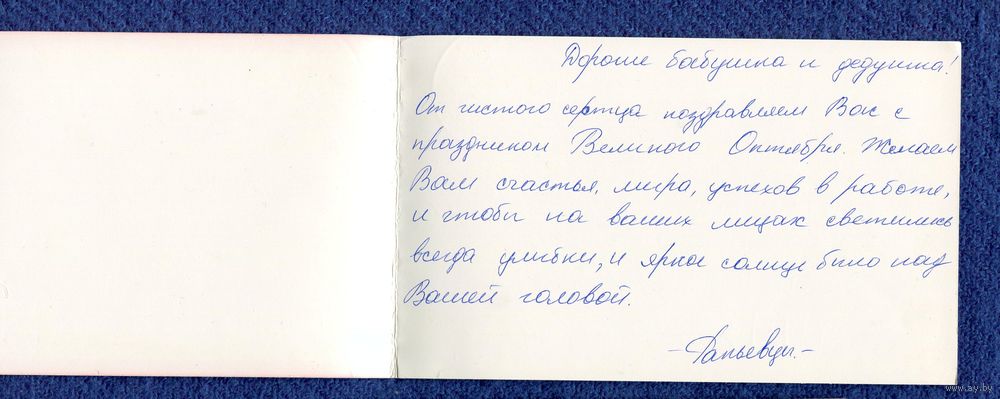 Дорогие бабушка и дедушка!
От чистого сертца поздравляем Вас с
праздником Великого Октября. Желаем
Вам счастья, мира, успехов в работе,
и чтобы на ваших лицах светились
всегда улыбки, и яркое солнце было над
Вашей головой.
www.ay.by